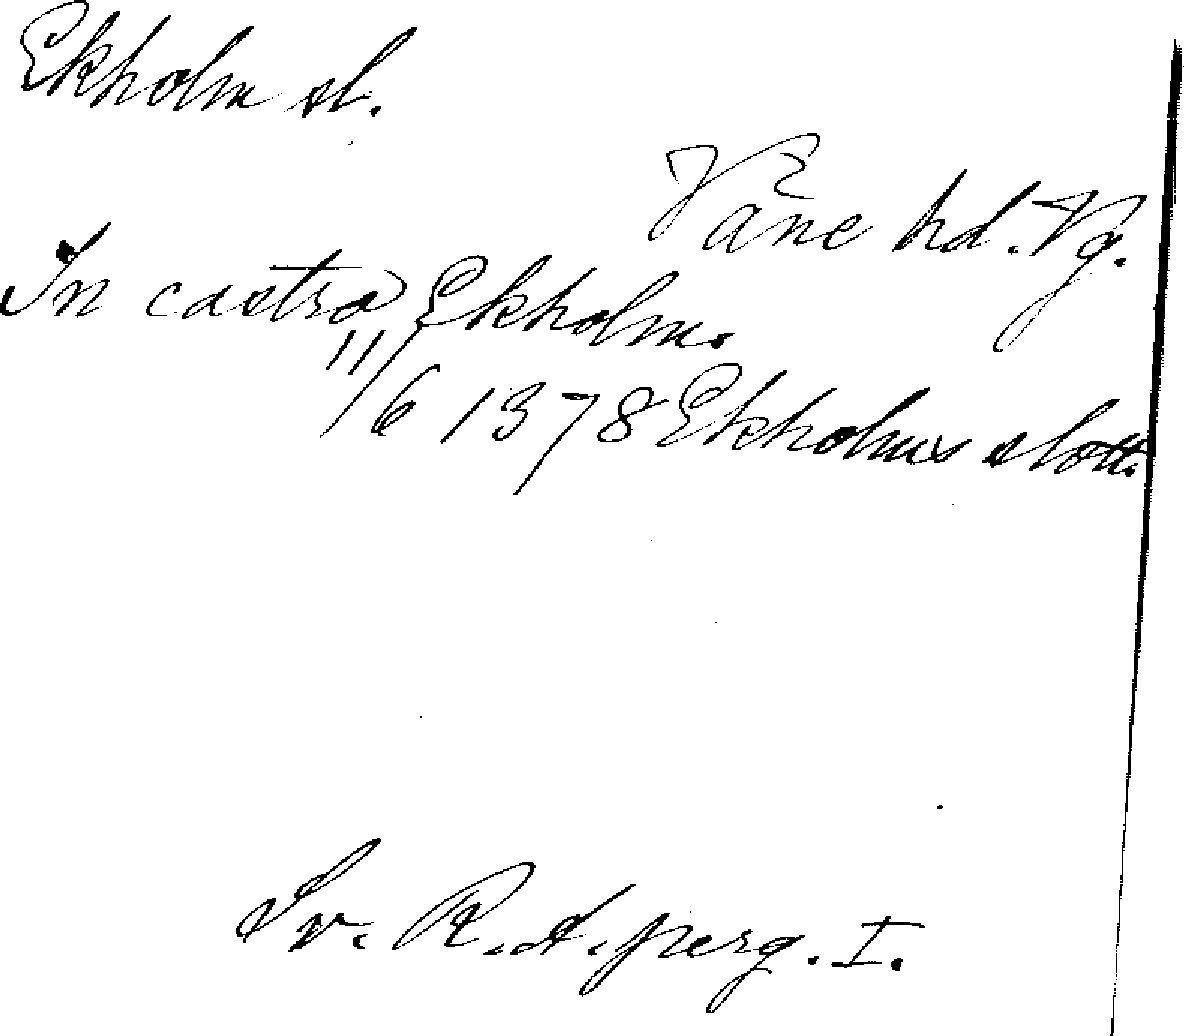 Ekholm sl.
Väne hd. Vg.
In castro Ekholm.
11/6 1378 Ekholms slott.
Sv. R. A. perg. I.